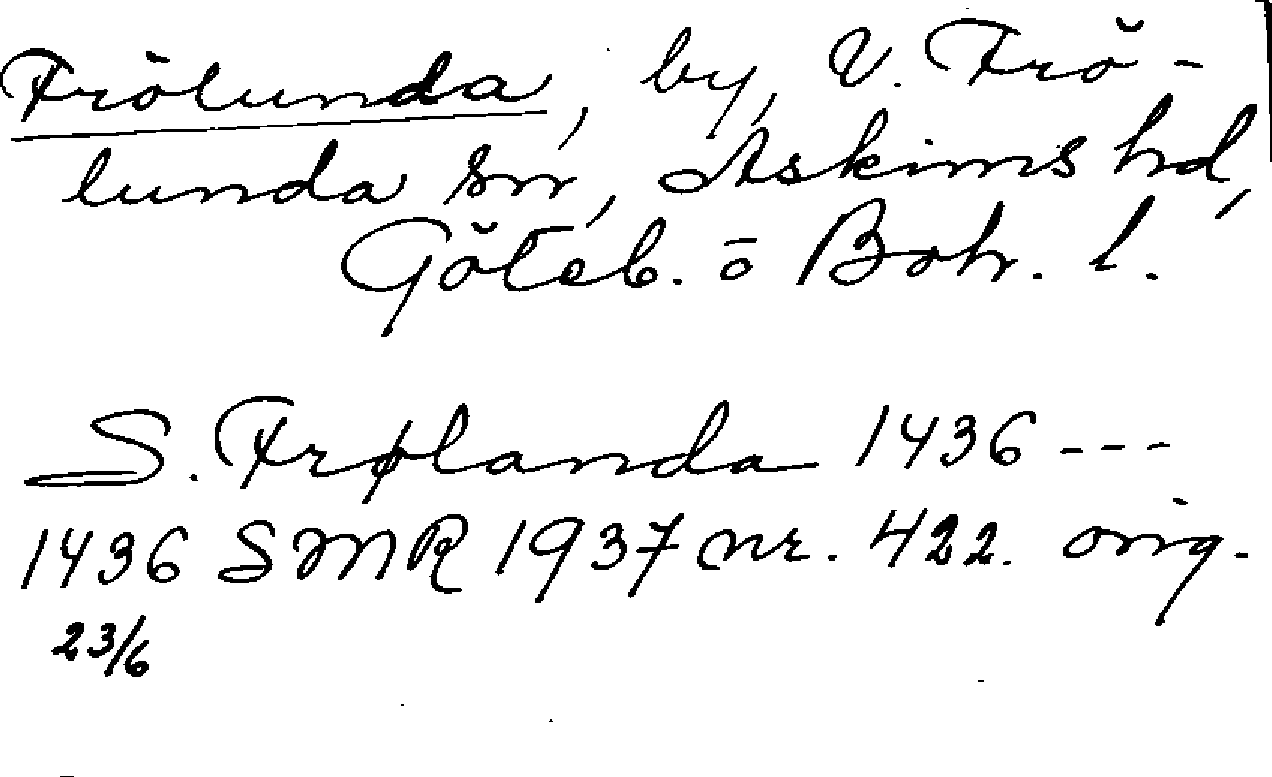 Frölunda, by, V. Frö-
lunda sn, Askims hd,
Göteb. o Boh. l.
S. Frølanda 1436 ---
1436 SMR 1937 nr. 422. orig.
23/6